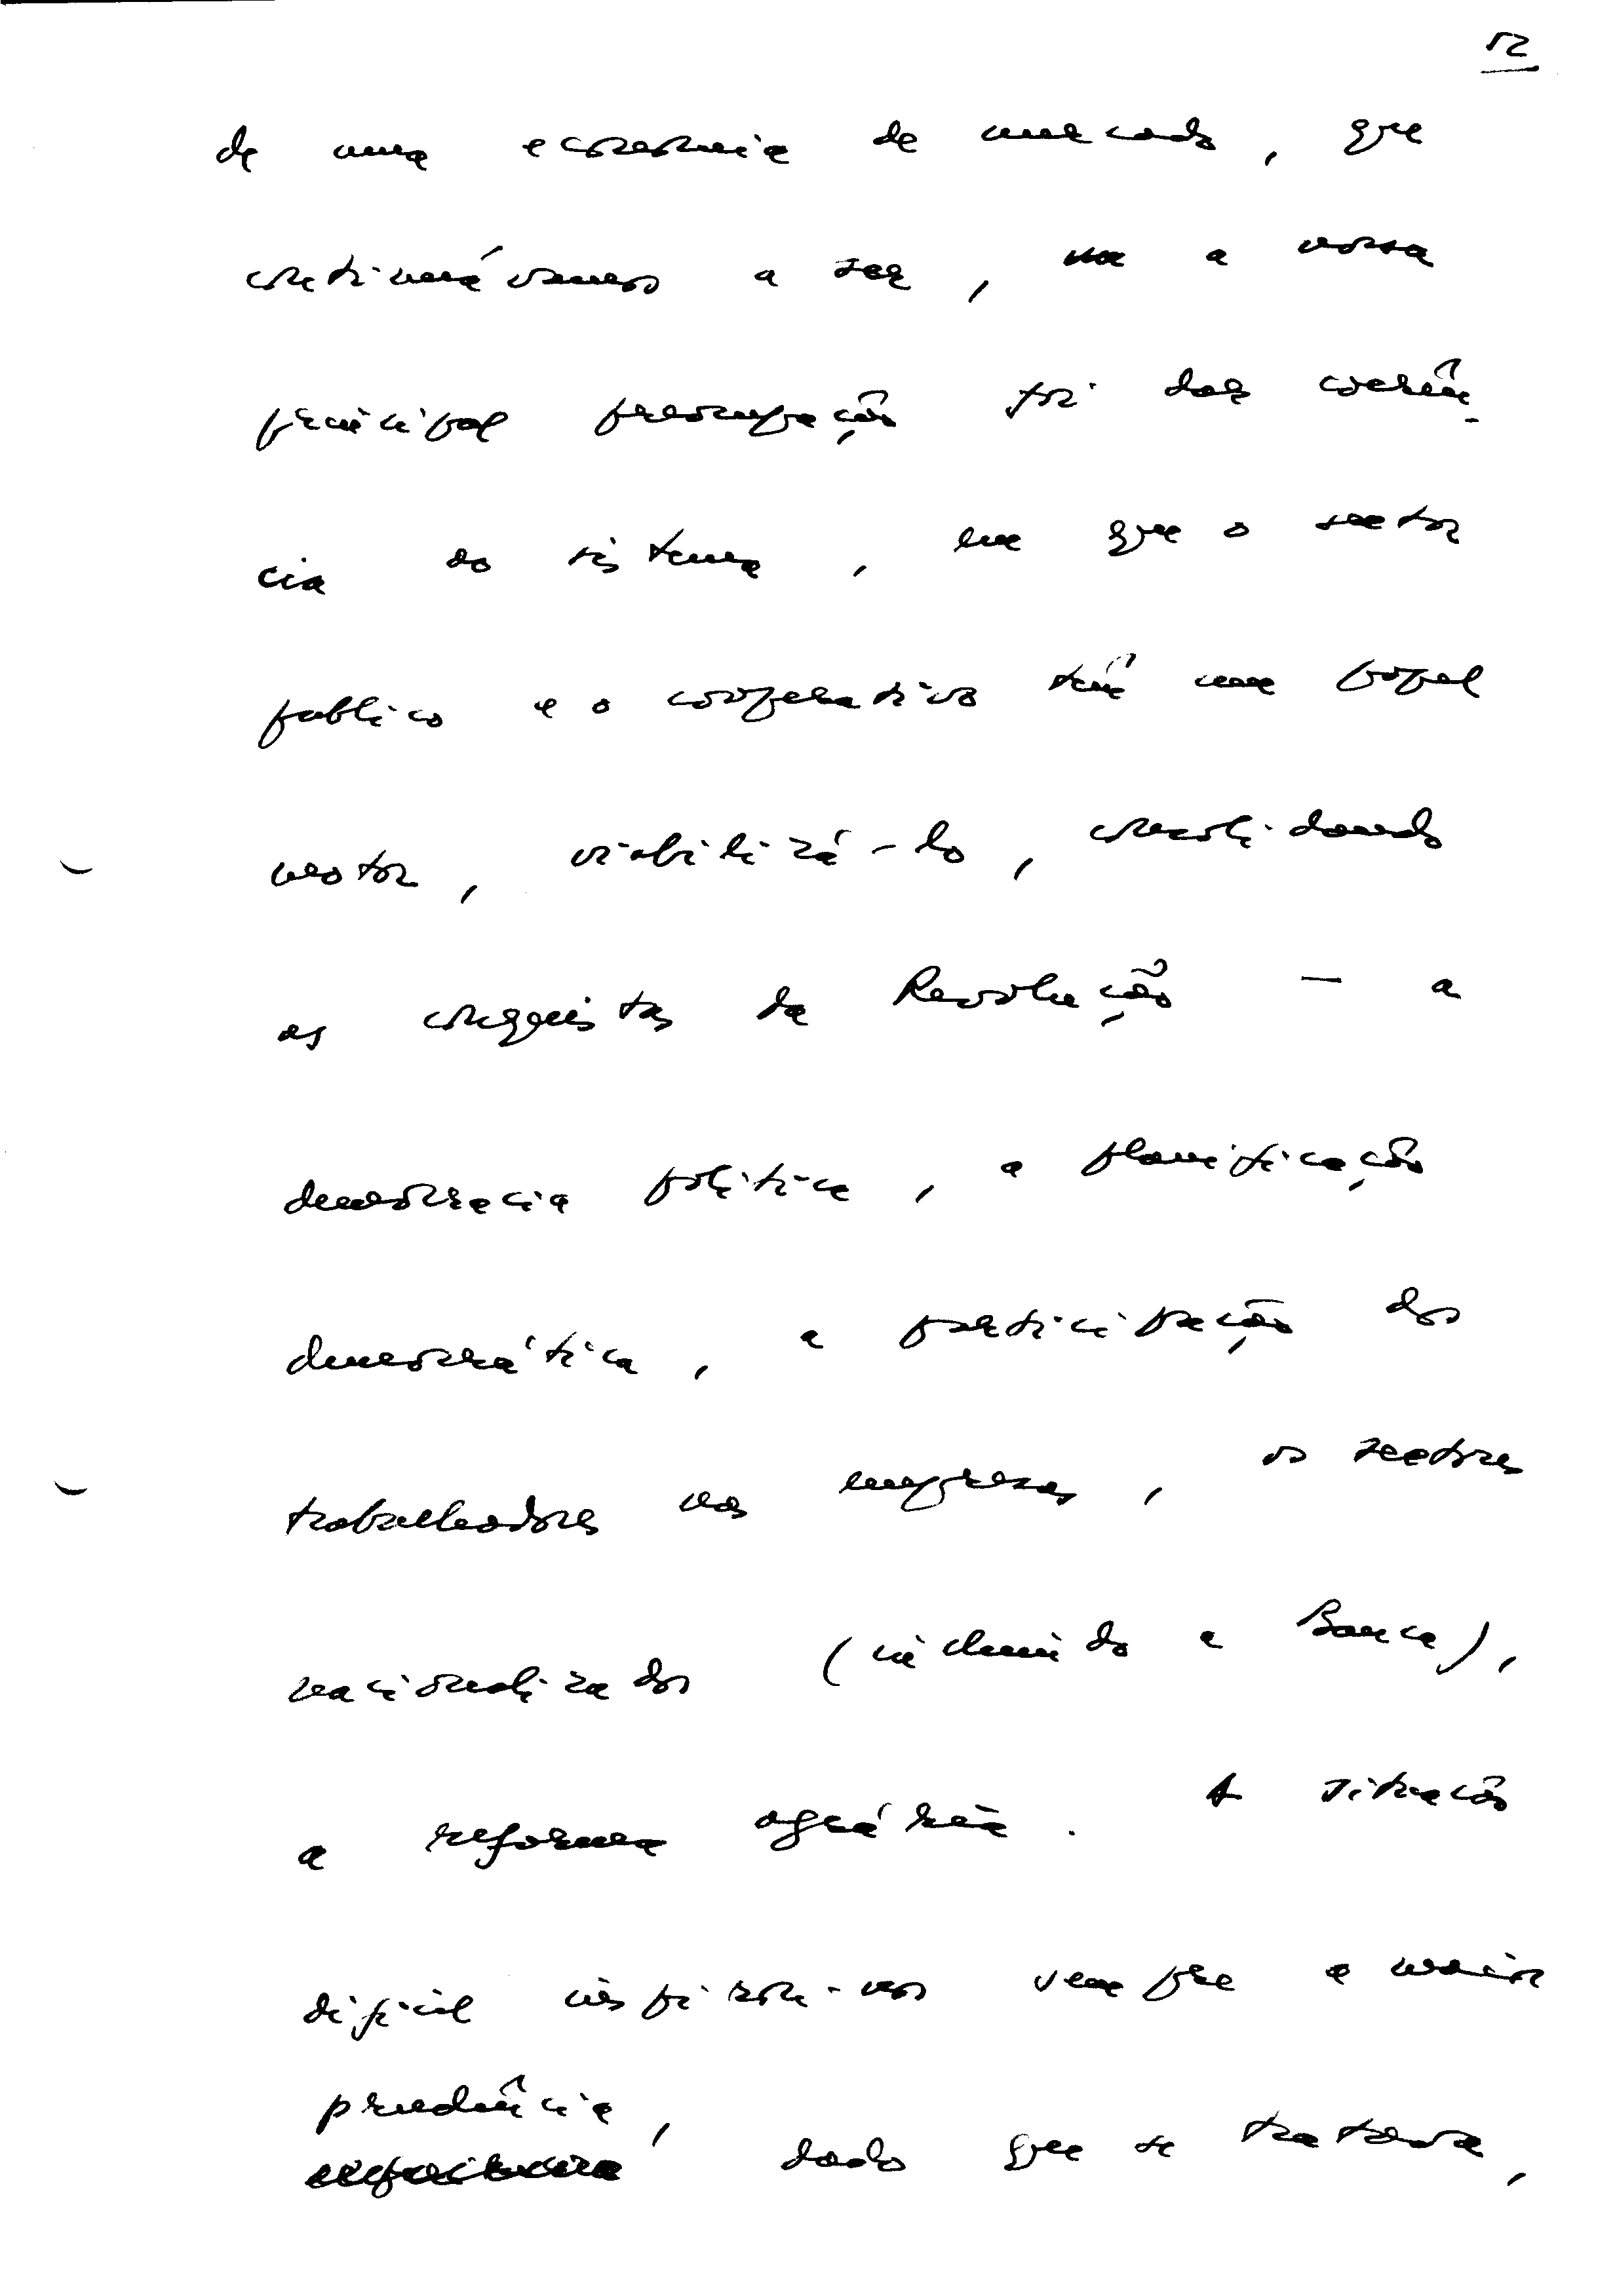 12
de uma economia de mercado, que
continuávamos a ser, mas a nossa
principal preocupação foi dar coerên-
cia ao sistema, em que o sector
publico e o cooperativo têm um papel
motor, viabilizá-lo, consolidando
as conquistas da Revolução — a
democracia politica, a planificação
democrática, a participação dos
trabalhadores nas empresas, os sectores
nacionalizados (incluindo a Banca),
a reforma agrária. A situação
dificil inspirou-nos sempre a maior
prudência,
dado que se tratava,